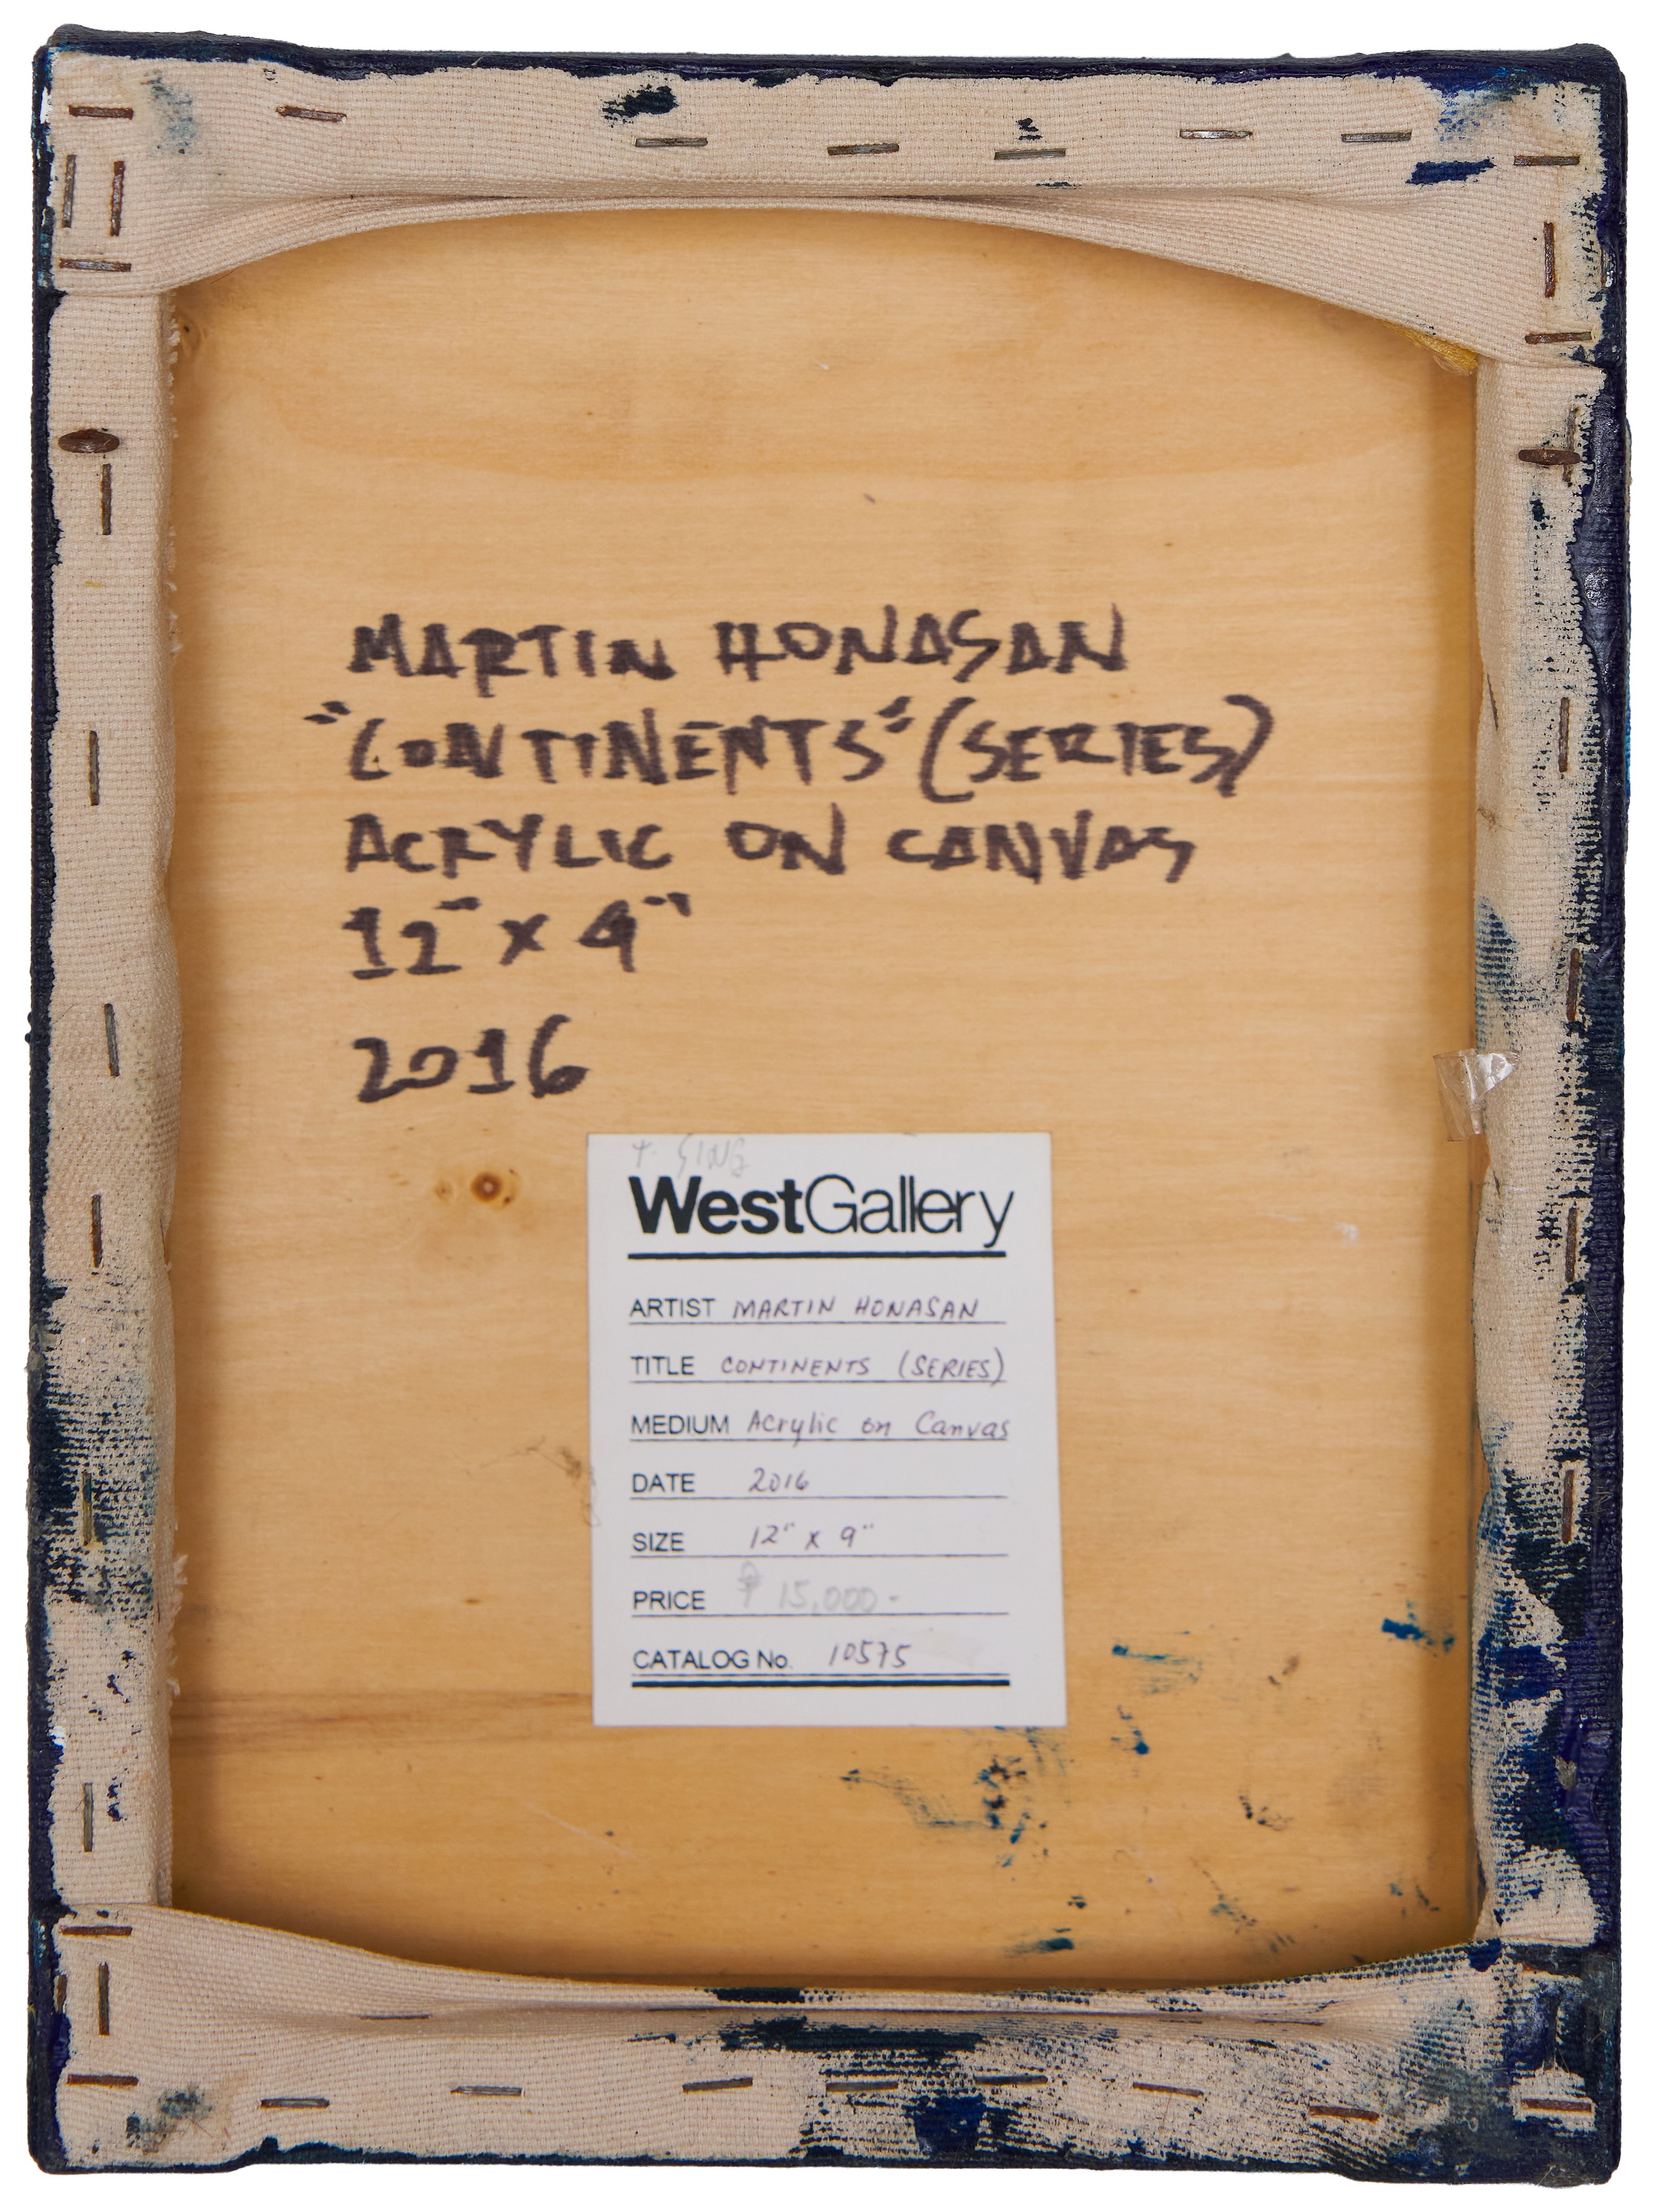 MARTIN HONASAN
"CONTINENTS" (SERIES)
ACRYLIC ON CANVAS
12" x 9"
2016
WestGallery
ARTIST MARTIN HONASAN
TITLE CONTINENTS (SERIES)
MEDIUM Acrylic on Canvas
DATE 2016
SIZE 12" x 9"
PRICE ₱ 15,000-
CATALOG No. 10575